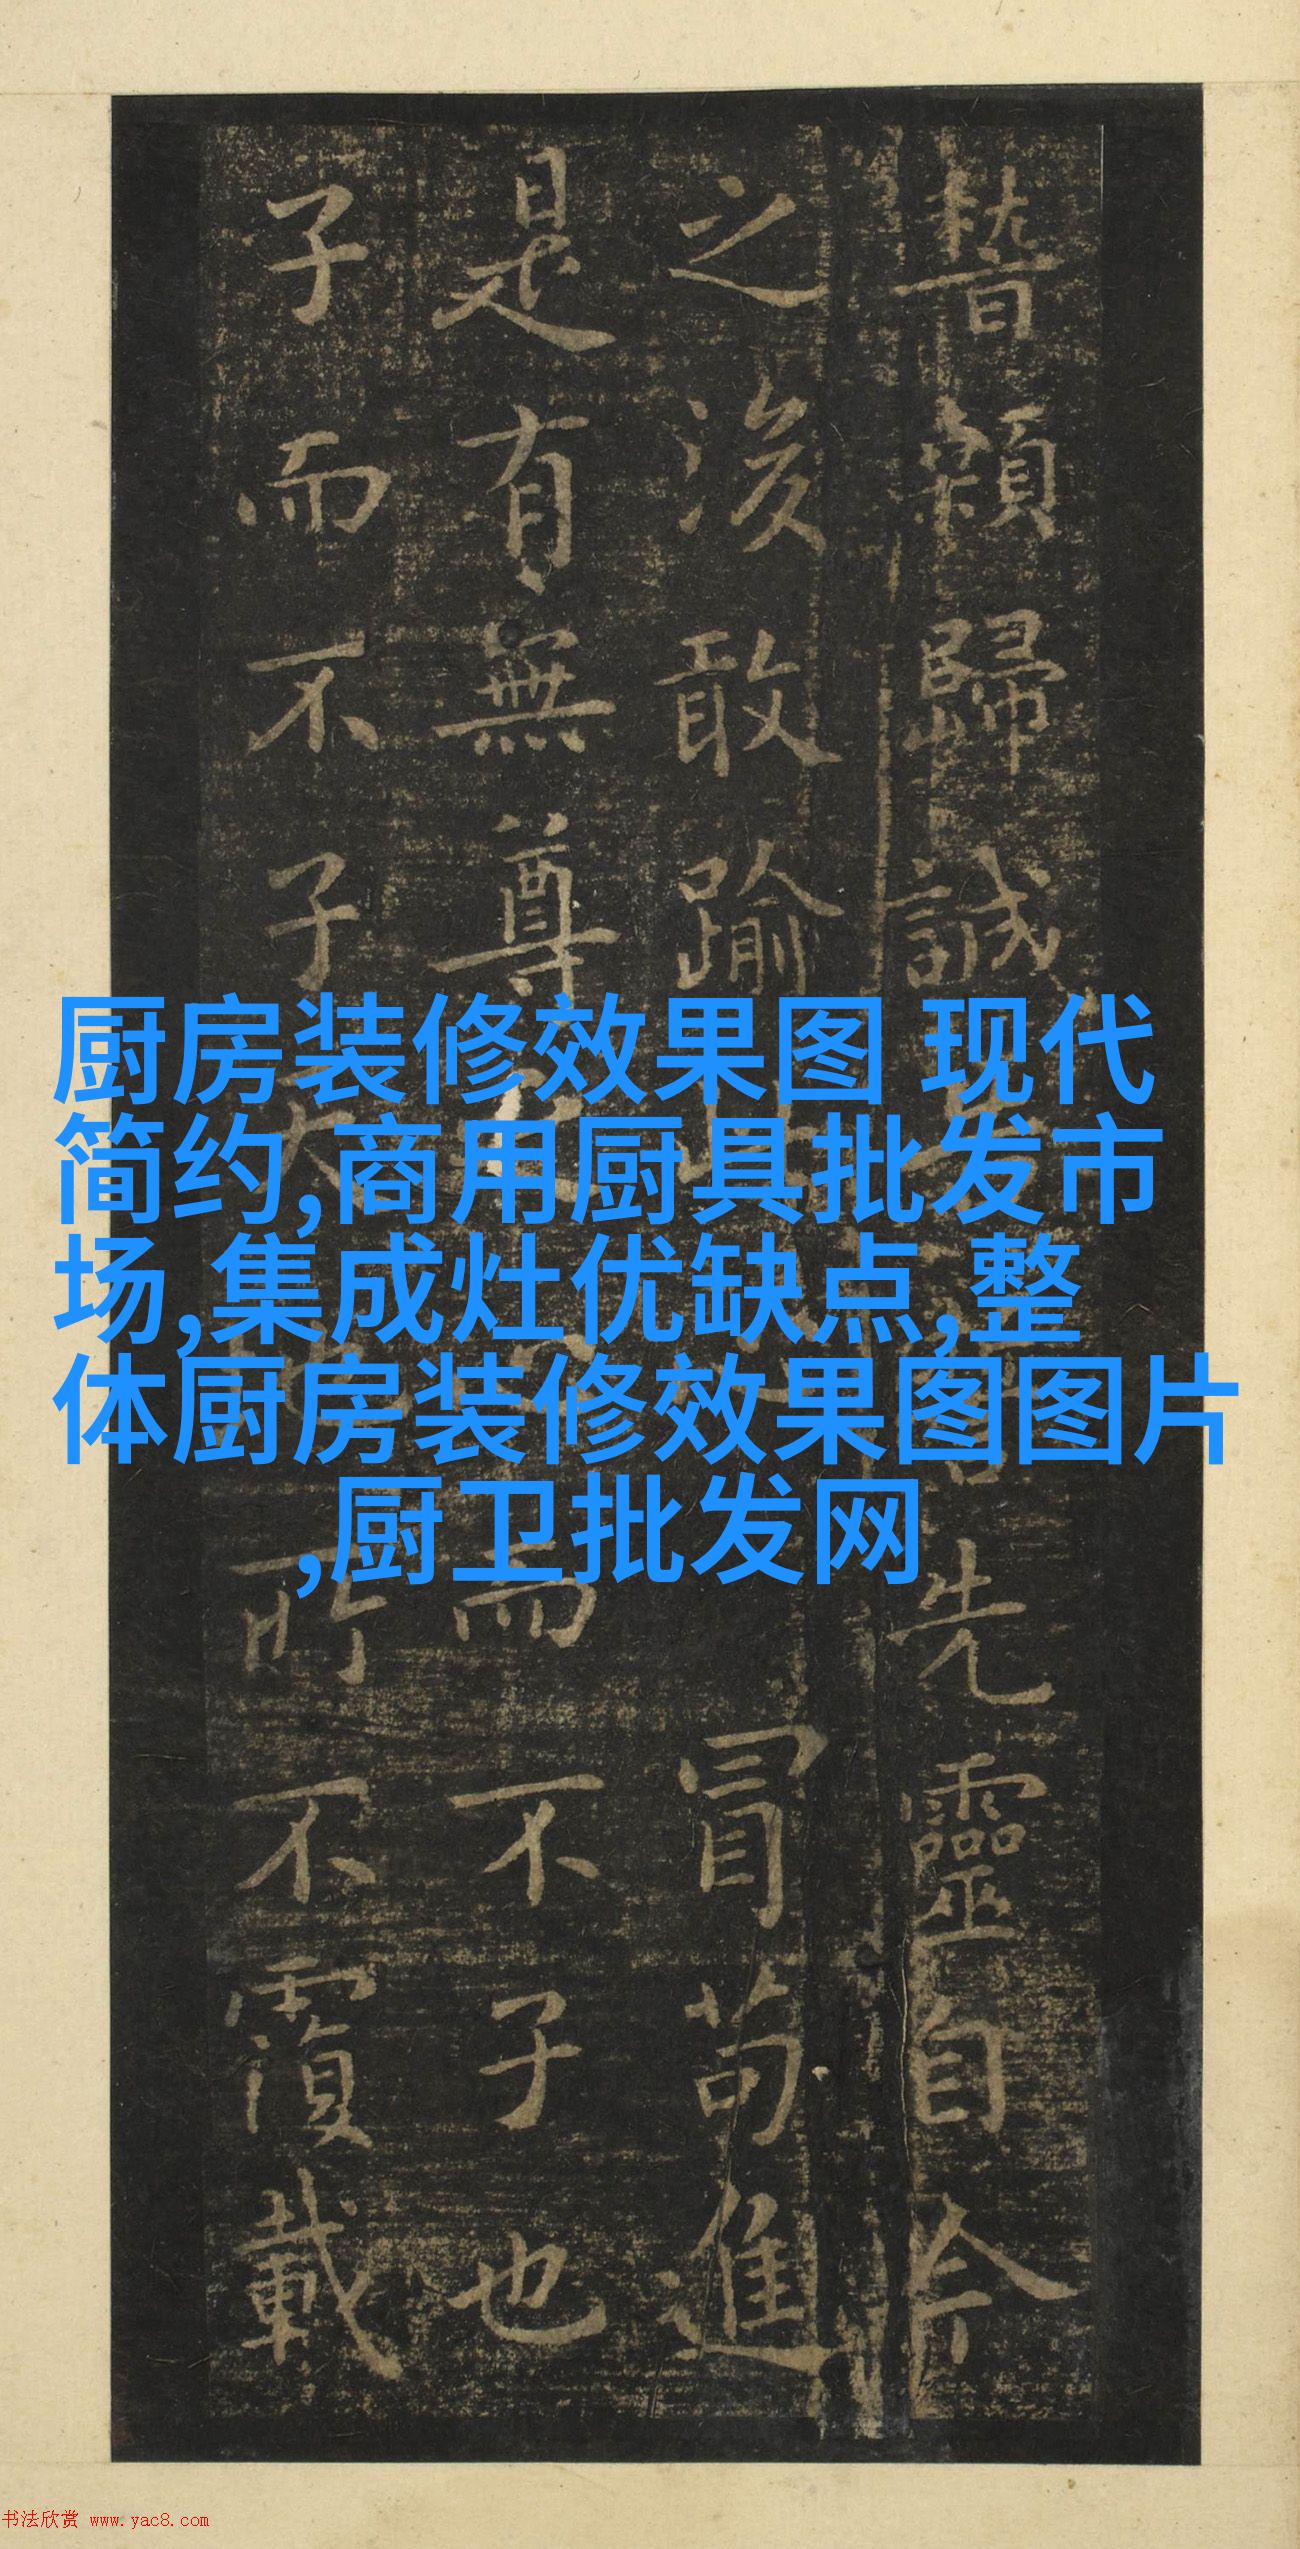 厨房装修效果图 现代
简约,商用厨具批发市
场,集成灶优缺点,整
体厨房装修效果图图片
,厨卫批发网
稽顙歸誠 先靈自今
之後敢踰 冒苟進
是有無尊 而不子也
子而不子 所不覆載
书法欣赏 www.yac8.com